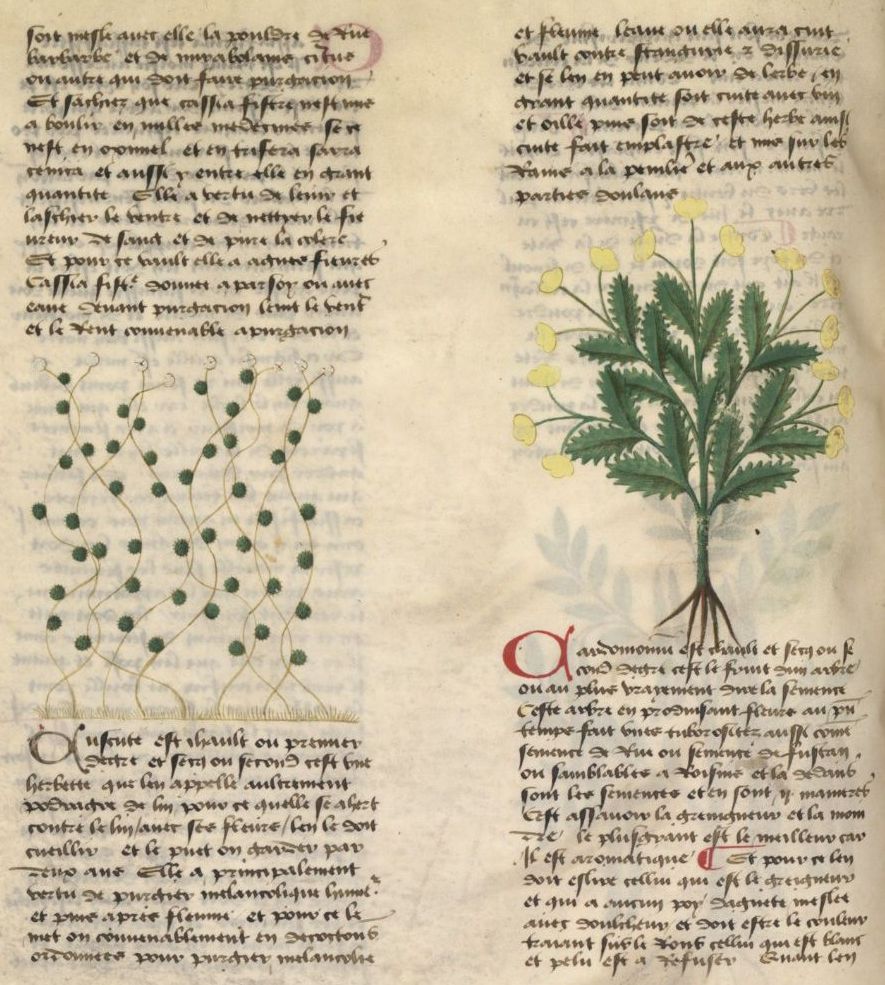 soit mesle avec elle la pouldre de Rue
barbarbe et de mirabolains citrins
ou autre qui doit faire purgacion
Et sachiez que cassia fistre nest mie
a boulir en nulles medecines se ce
nest en oximel et en trifera sarra
cenica et aussi y entre elle en grant
quantite Elle a vertu de lenir et
laschier le ventre et de nettyer le fie
ureur de sang et de pure la colere
Et pour ce vault elle a agues fieures
Cassia fist donnee a par soy ou avec
eaue devant purgacion lenit le vent
et le Rent convenable a purgacion
Cuscute est chault ou premier
degre et secq ou second cest une
herbette que len appelle aultrement
podragre de lin pour ce quelle se ahert
contre le lin / avec ses fleurs / len le doit
cueillir et le puet on garder par
deux ans Elle a principalement
vertu de purgier melancolique hume
et puis apres fleume et pour ce le
met on convenablement en decoctons
ordonnees pour purgier melancolie
et fleume leaue ou elle aura cuit
vault contre stranguirie z dissurie
et se len en peut avoir de lerbe / en
grant quantite soit cuite avec vin
et oille puis soit de ceste herbe ainsi
cuite fait emplastre et mis sur les
Rains a la penilie et aux autres
parties doulans
Cardomomu est chault et secq ou se
cond degre cest le fruit dun arbre
ou au plus vrayement dire la semence
Ceste arbre en produisant fleurs au pri
temps fait unes tuborositez aussi come
semence de Rue ou semence de fustan
ou samblables a Roisins et la dedans
sont les semences et en sont .ij. manieres
Cest assavoir la greingneur et la moin
dre le plusgrant est le meilleur car
Il est aromatique ¶ Et pour ce len
doit eslire cellui qui est le greigneur
et qui a aucun poy daguete meslee
avec doulcheur et doit estre le couleur
traiant sus le Rous cellui qui est blanc
et pelu est a Refuser Quant len